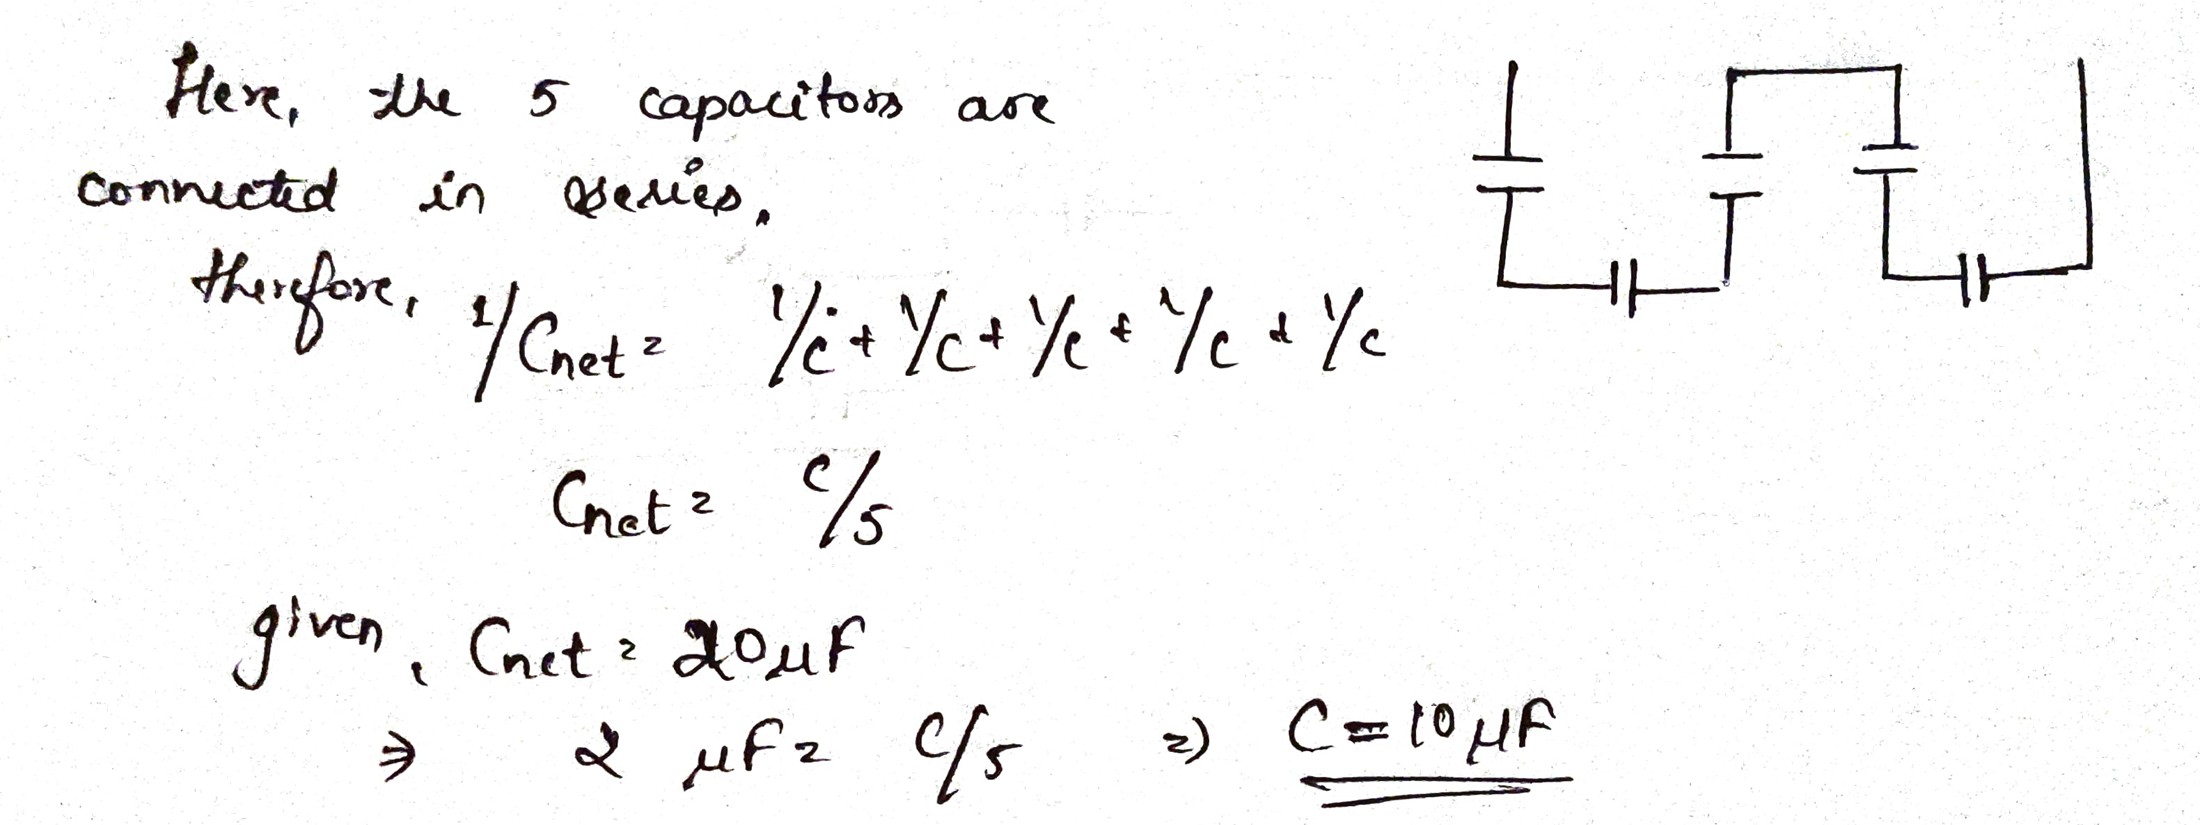 Here, the 5 capacitors are
connected in series.
therefore, 1/Cnet = 1/C + 1/C + 1/C + 1/C + 1/C
Cnet = C/5
given, Cnet = 20μF
⇒ 2 μF = C/5 ⇒ C = 10 μF